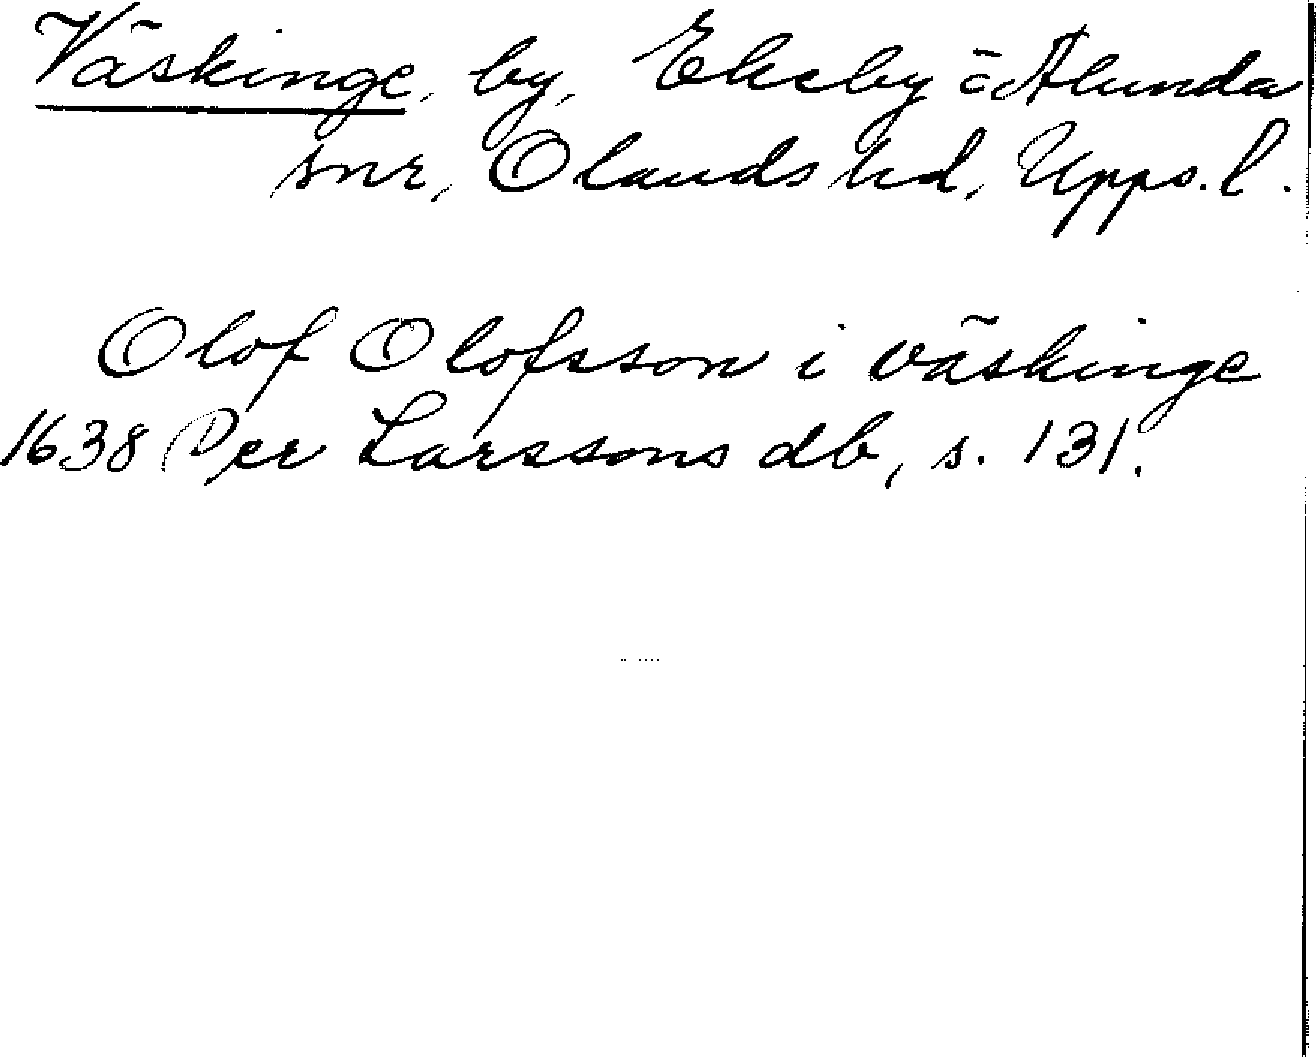 Väskinge, by, Ekeby o Alunda
snr, Olands hd, Upps. l.
Olof Olofsson i väskinge
1638 Per Larssons db, s. 131.